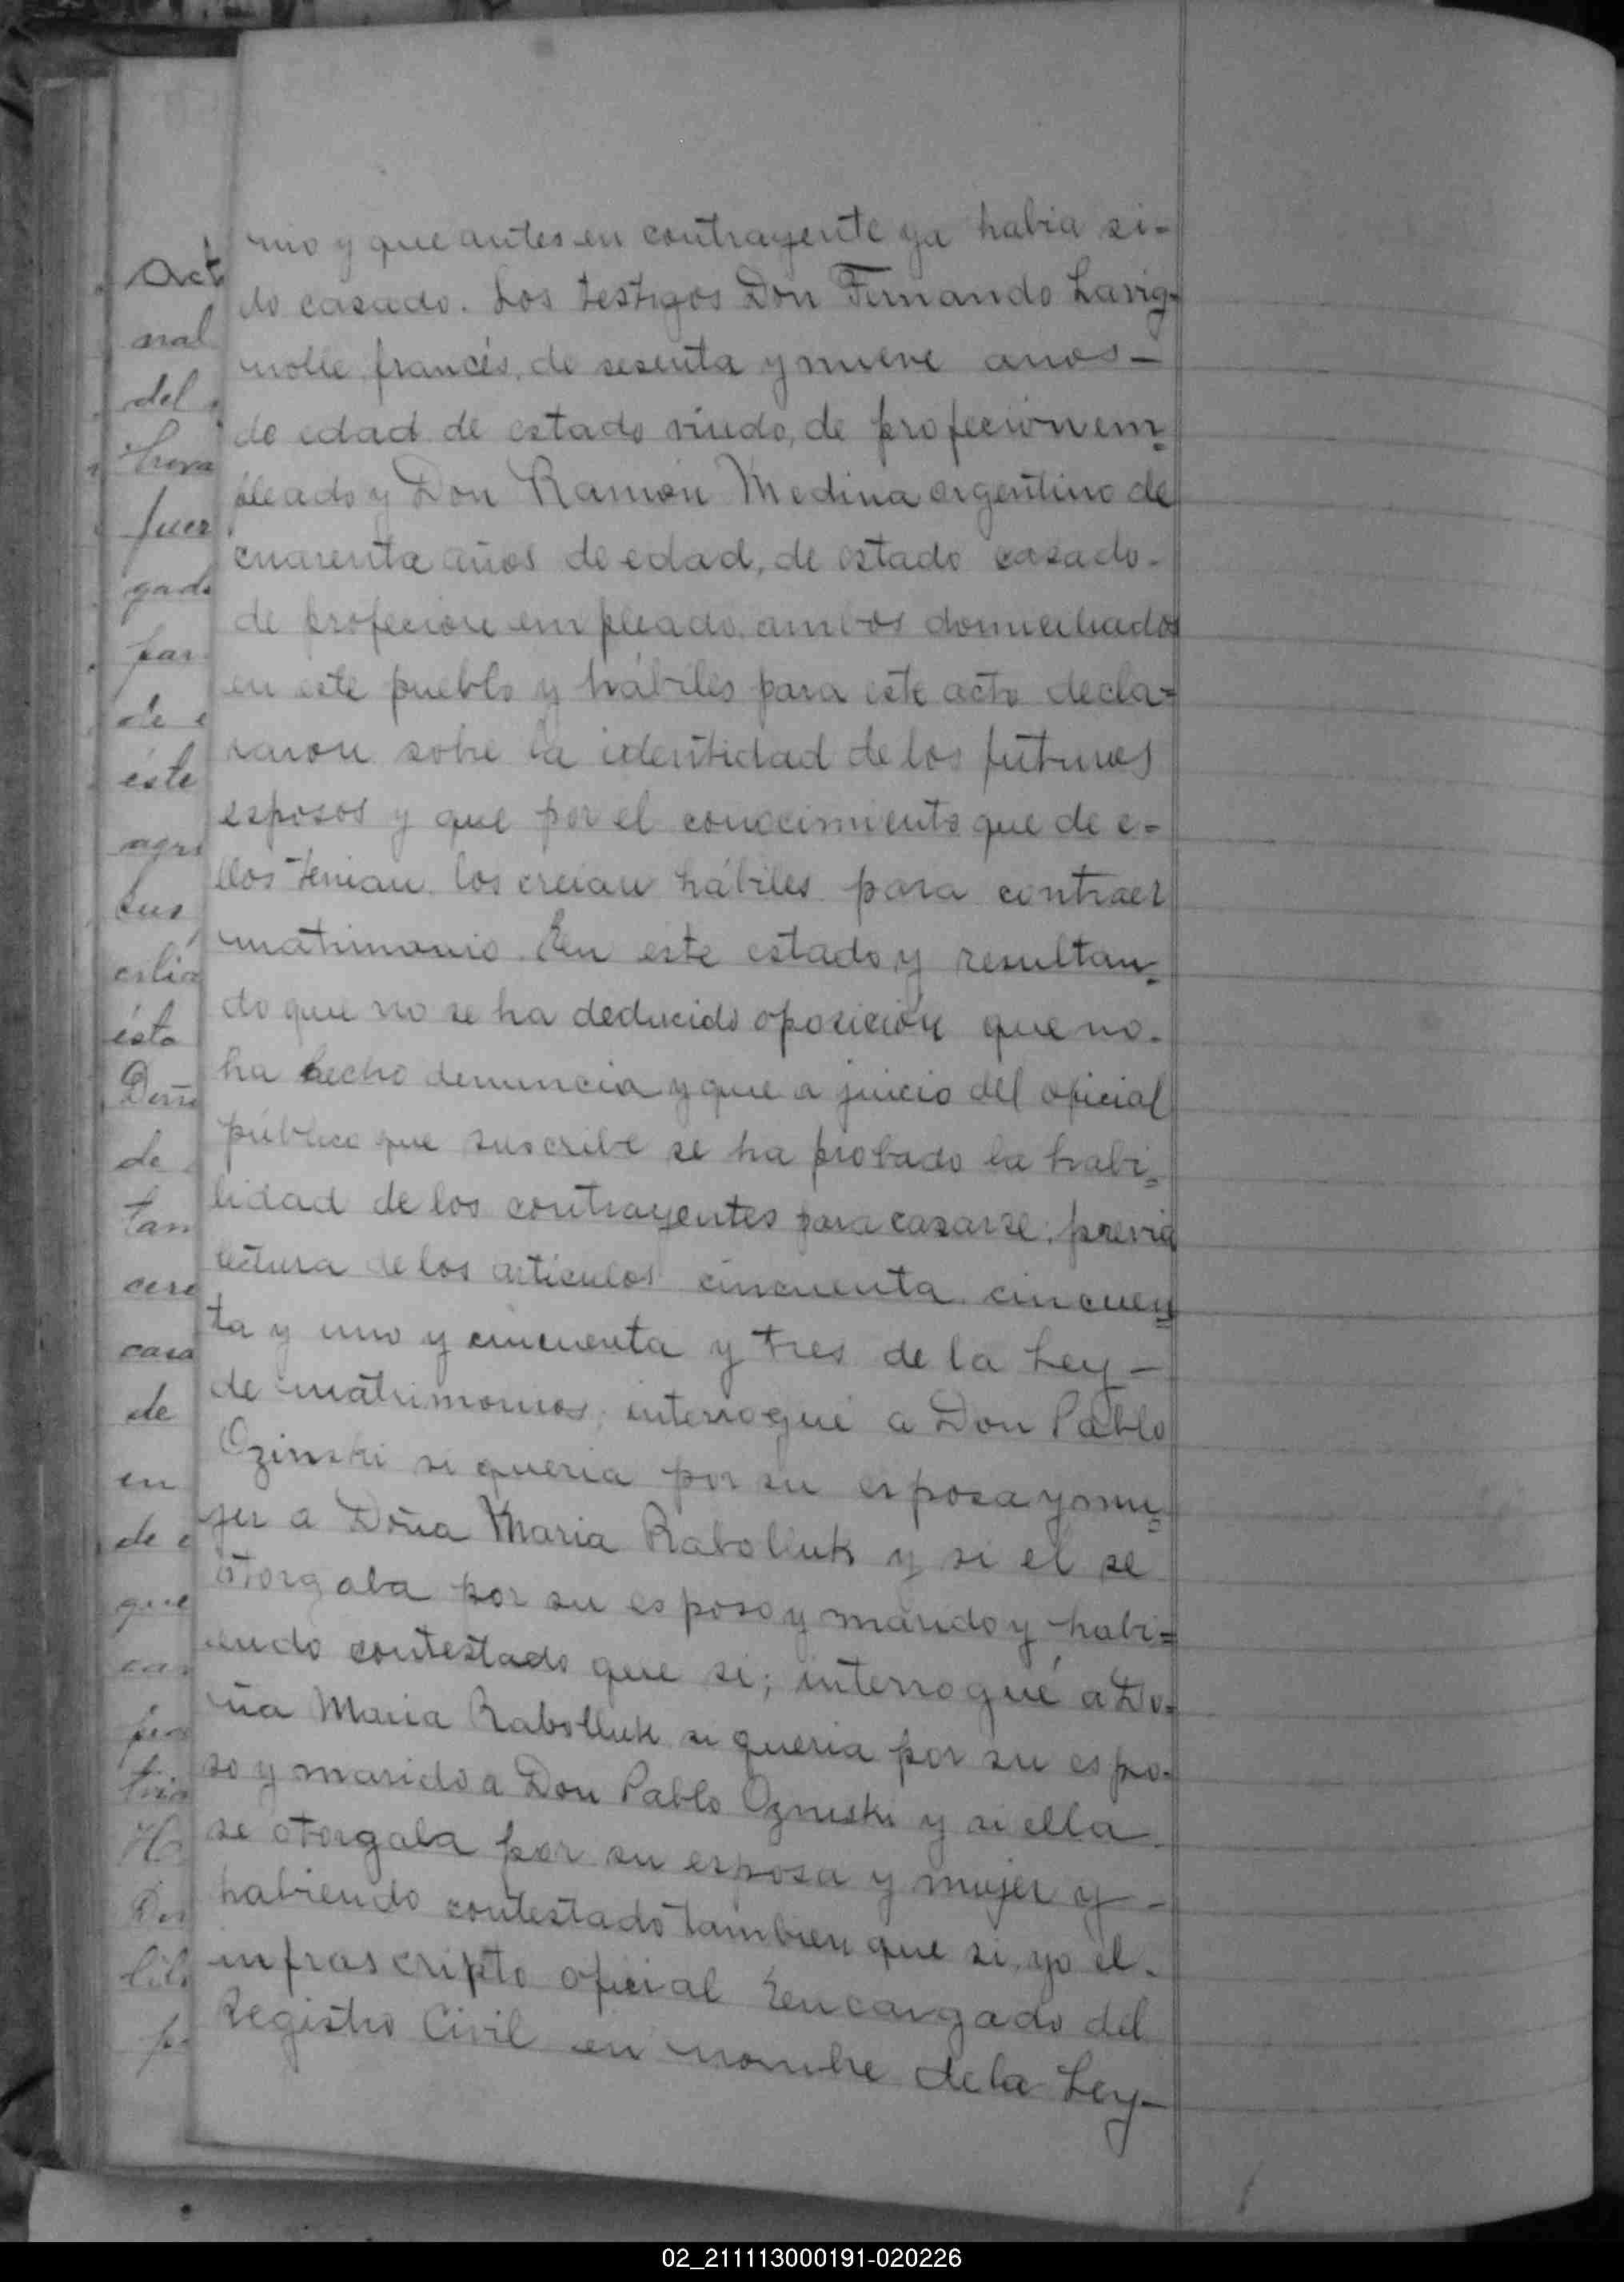 nio y que antes en contrayente ya habia si-
do casado. Los testigos Don Fernando Lavig-
nolle, francés, de sesenta y nueve anos -
de edad de estado viudo, de profecion em=
pleado y Don Ramón Medina argentino de
cuarenta años de edad, de estado casado.
de profecion empleado, ambos domiciliados
en este pueblo y hábiles para este acto decla=
raron sobre la identidad de los futuros
esposos y que por el conocimiento que de e=
llos tenian los creian hábiles para contraer
matrimonio. En este estado y resultan=
do que no se ha deducido oposición que no.
ha hecho denuncia y que a juicio del oficial
público que suscribe se ha probado la habi=
lidad de los contrayentes para casarse, previa
lectura de los articulos cincuenta, cincuen=
ta y uno y cincuenta y tres de la Ley -
de matrimonios, interrogué a Don Pablo
Ozinski si queria por su esposa y mu=
jer a Doña Maria Rabolluk y si el se
otorgaba por su esposo y marido y habi=
endo contestado que si; interrogué a Do=
ña Maria Rabolluk si queria por su espo=
so y marido a Don Pablo Ozinski y si ella
se otorgaba por su esposa y mujer y -
habiendo contestado tambien que si, yo el.
infrascripto oficial Encargado del
Registro Civil en nombre de la Ley-
Act
nal
del
hora
juer
gado
par
de e
éste
agri
sus
esta
Doñ
de
tan
cere
casa
de
en
de e
que
cas
02_211113000191-020226